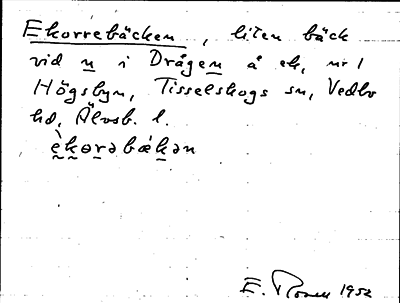 Ekorrebäcken, liten bäck
vid n i Drågen å ek, nr 1
Högsbyn, Tisselskogs sn, Vedbo
hd, Älvsb. l.
èkorəbækən
E. 1952